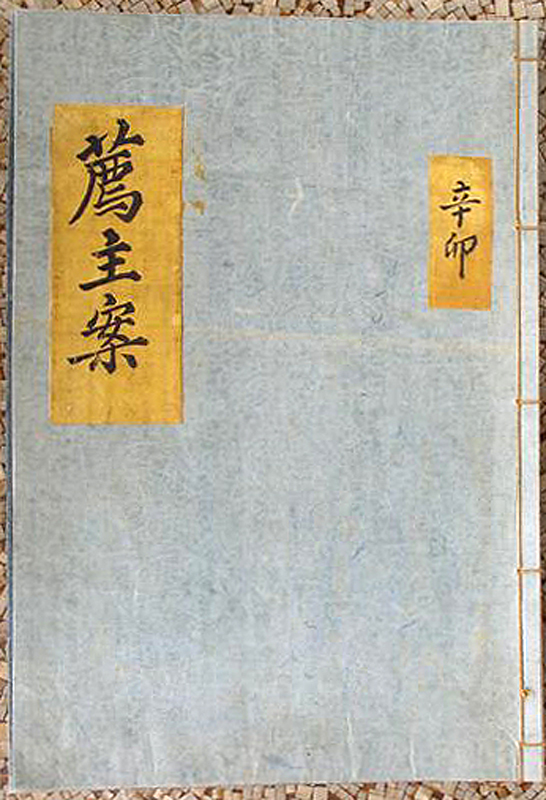 辛卯
薦主案